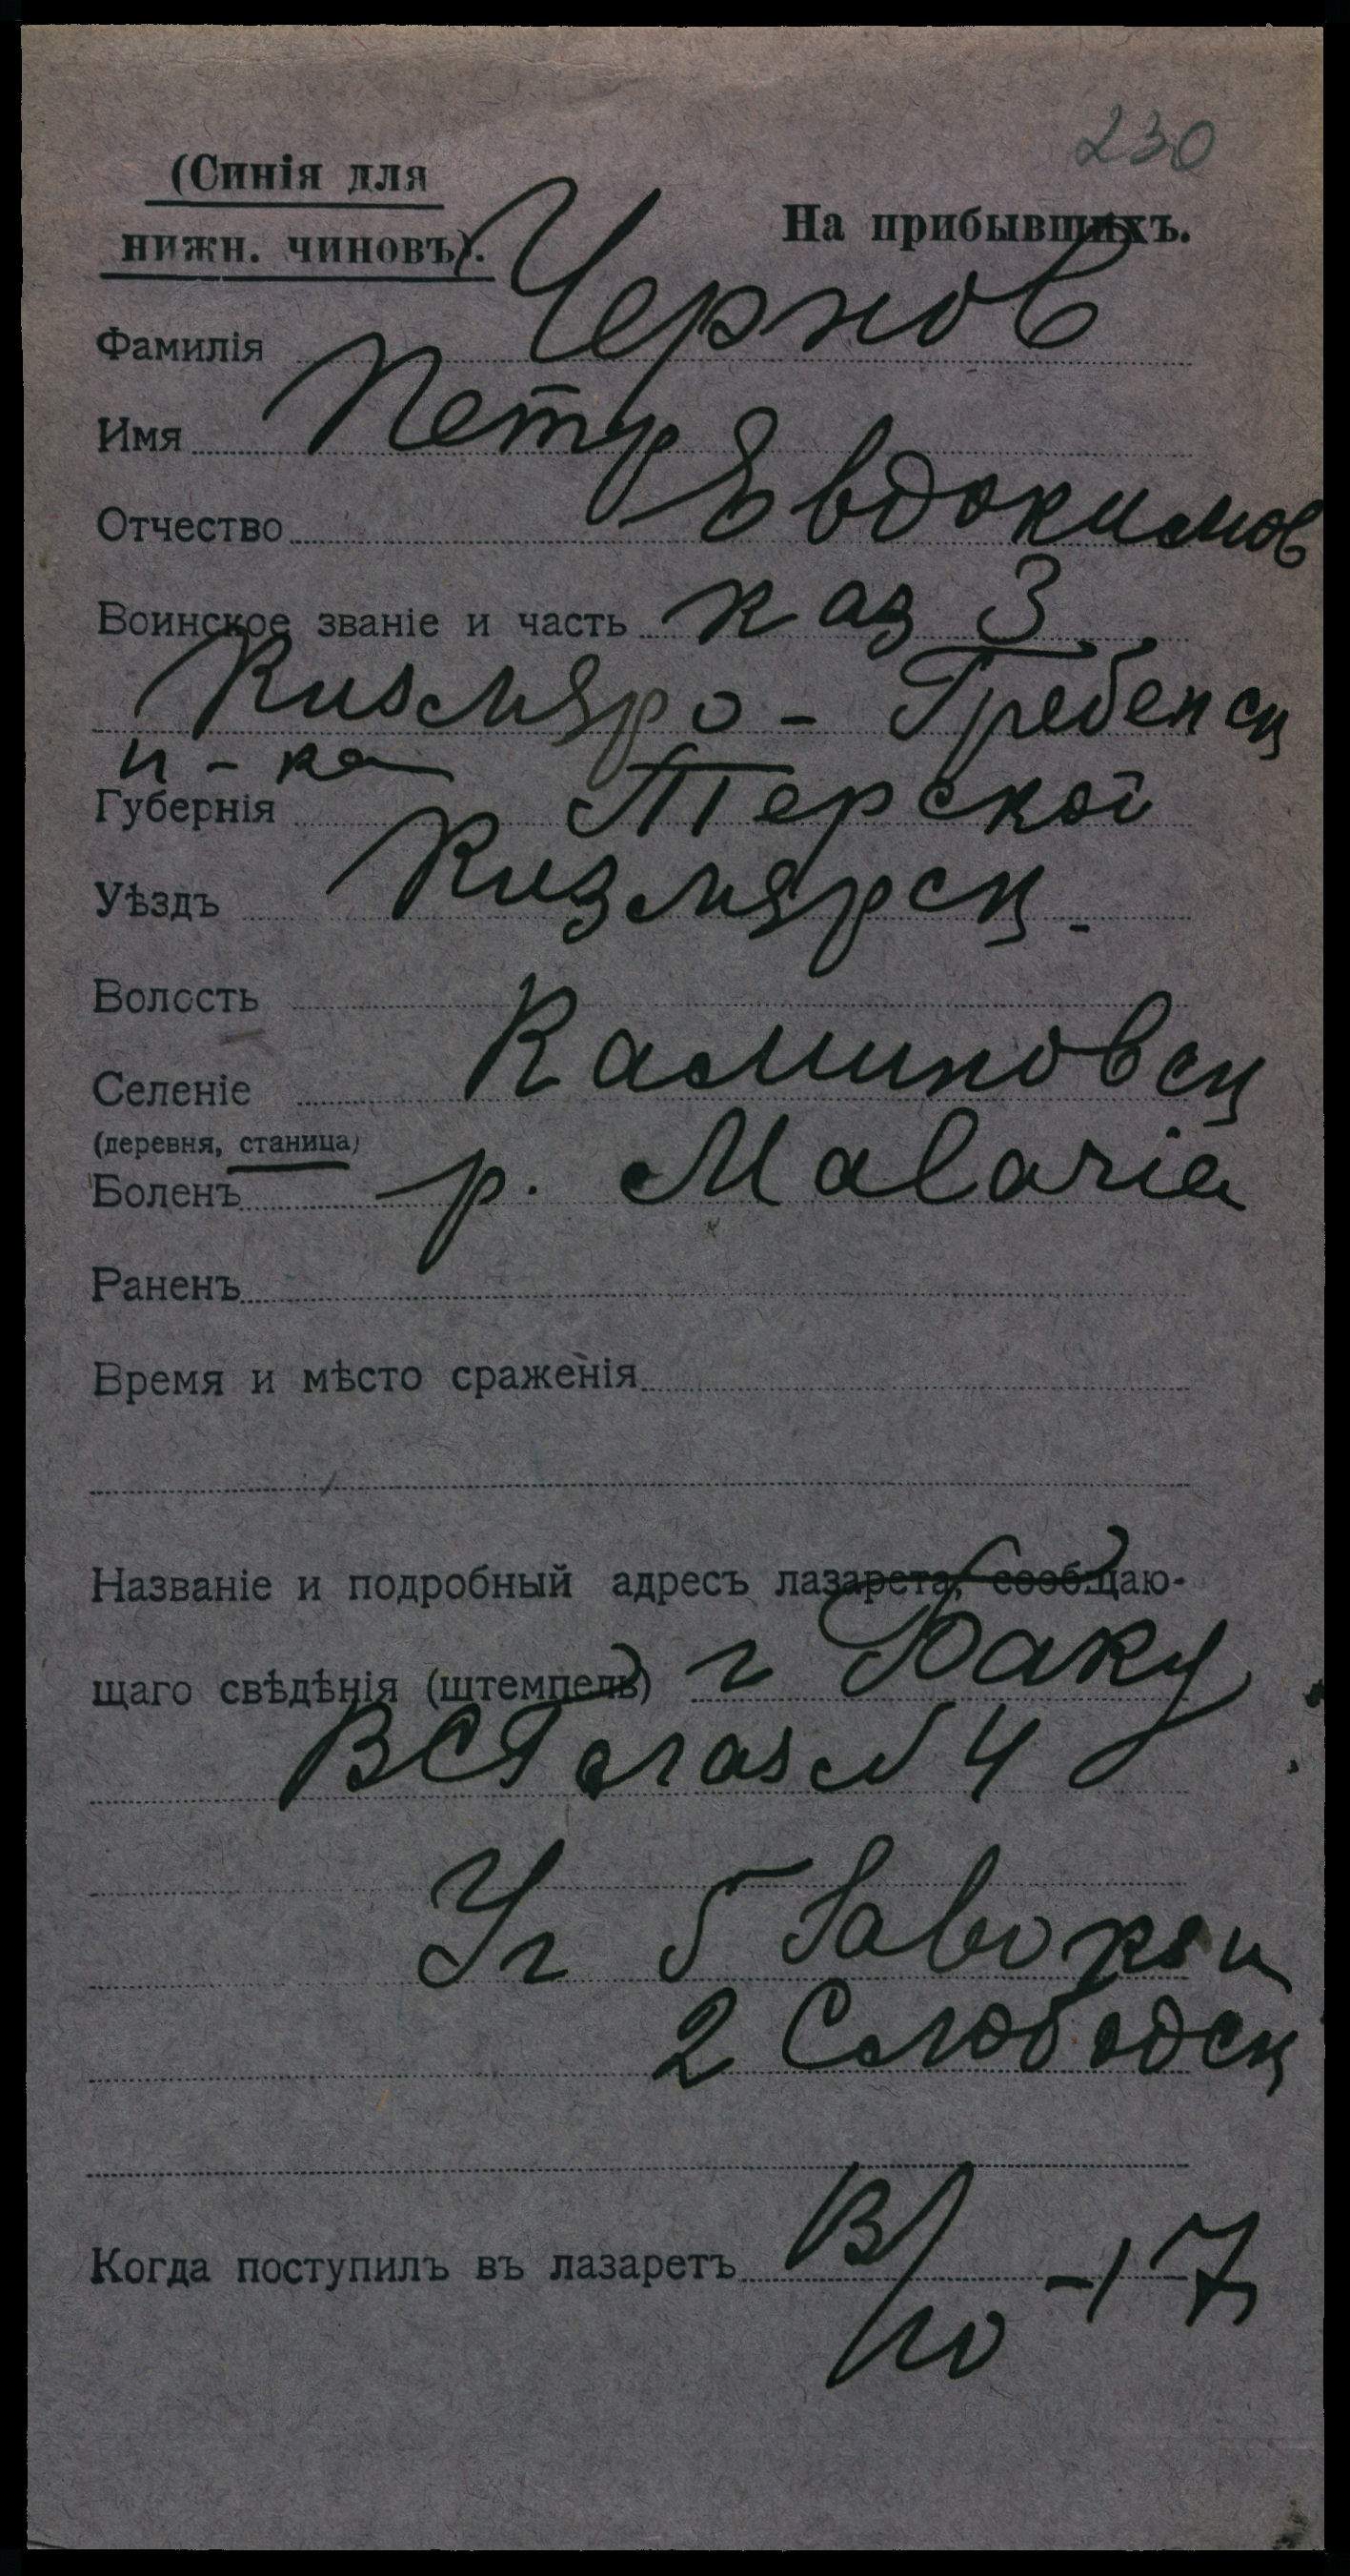 230
(Синія для
нижн. чиновъ).
На прибывшихъ.
Фамилія Чернов
Имя Петр
Отчество Евдокимов
Воинское званіе и часть каз 3
Кизляро - Гребенск
п-ка
Губернія Терской
Уѣздъ Кизлярск
Волость
Селеніе Калиновск
(деревня, станица)
Боленъ р. Malaria
Раненъ
Время и мѣсто сраженія
Названіе и подробный адресъ лазарета, сообщаю-
щаго свѣдѣнія (штемпель) г Баку
ВСГ лаз N 4
Уг 5 Завокзн
2 Слободск
Когда поступилъ въ лазаретъ /10 - 17